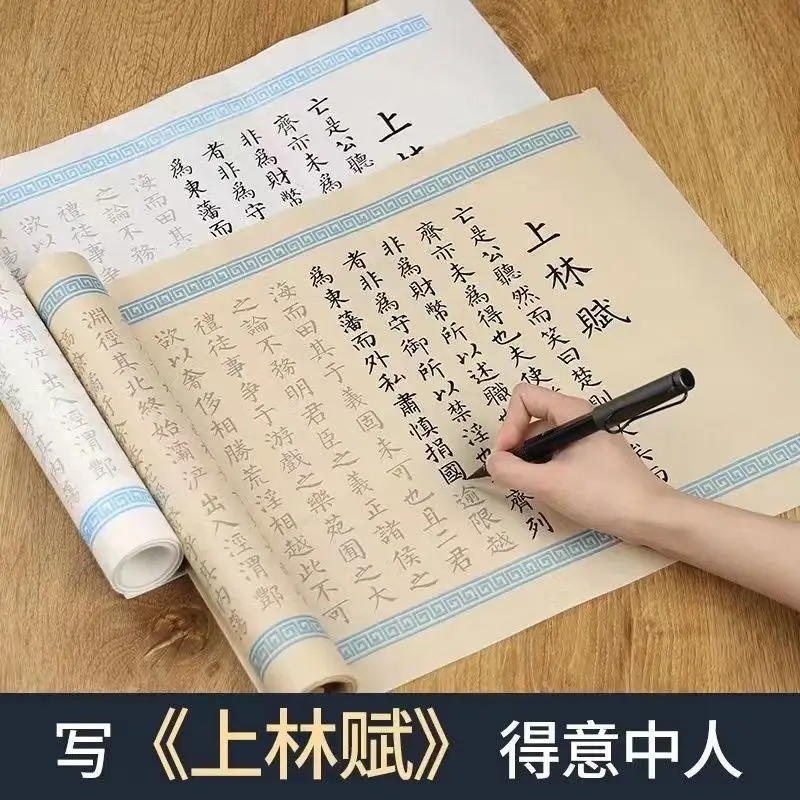 上
亡是公聽
齊亦未為
非為財幣
者非為守
為東藩而
海而田其
之論不務
禮徒事爭
欲以
始灞浐出入涇渭酆
上林賦
亡是公聽然而笑曰楚則矣而
齊亦未為得也夫使
非為財幣所以述職
者非為守御所以禁淫也齊列
為東藩而外私肅慎捐國逾限越
海而田其于義固未可也且二君
之論不務明君臣之義正諸侯之
禮徒事爭于游戲之樂苑囿之大
欲以奢侈相勝荒淫相越此不可
淵徑其北終始灞浐出入涇渭酆
写《上林赋》得意中人